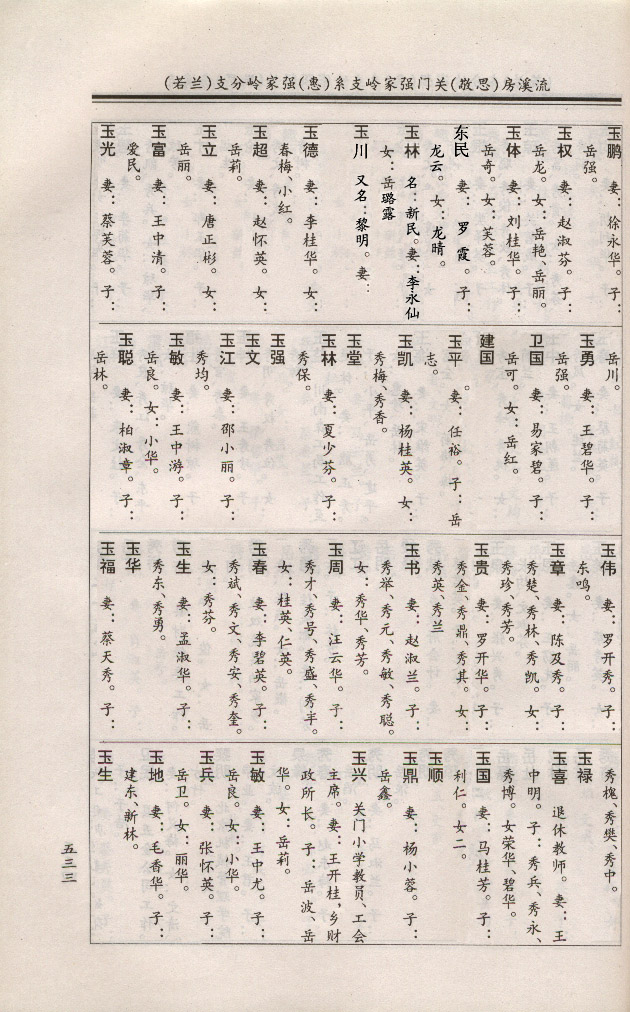 流溪房(思敬)关门强家岭支系(惠)强家岭分支(兰若)
玉鹏 妻：徐永华。子：
岳强。
玉权 妻：赵淑芬。子：
岳龙。女：岳艳、岳丽。
玉体 妻：刘桂华。子：
岳奇。女：芙蓉。
东民 妻：罗霞。子：
龙云。女：龙晴。
玉林 名：新民。妻：李永仙
女：岳璐露
玉川 又名：黎明。妻：
玉德 妻：李桂华。女：
春梅、小红。
玉超 妻：赵怀英。女：
岳莉。
玉立 妻：唐正彬。女：
岳丽。
玉富 妻：王中清。子：
爱民。
玉光 妻：蔡芙蓉。子：
岳川。
玉勇 妻：王碧华。子：
岳强。
卫国 妻：易家碧。子：
岳可。女：岳红。
建国
玉平 。妻：任裕。子：岳
志。
玉凯 妻：杨桂英。女：
秀梅、秀香。
玉堂
玉林 妻：夏少芬。子：
秀保。
玉强
玉文
玉江 妻：邵小丽。子：
秀均。
玉敏 妻：王中游。子：
岳良。女：小华。
玉聪 妻：柏淑章。子：
岳林。
玉伟 妻：罗开秀。子：
东鸣。
玉章 妻：陈及秀。子：
秀楚、秀林、秀凯。女：
秀珍、秀芳。
玉贵 妻：罗开华。子：
秀金、秀鼎、秀其。女：
秀英、秀兰
玉书 妻：赵淑兰。子：
秀举、秀元、秀敏、秀聪。
女：秀华、秀芳。
玉周 妻：汪云华。子：
秀才、秀号、秀盛、秀丰。
女：桂英、仁英。
玉春 妻：李碧英。子：
秀斌、秀文、秀安、秀奎。
女：秀芬。
玉生 妻：孟淑华。子：
秀东、秀勇。
玉华
玉福 妻：蔡天秀。子：
秀槐、秀樊、秀中。
玉禄
玉喜 退休教师。妻：王
中明。子：秀兵、秀永、
秀博。女荣华、碧华。
玉国 妻：马桂芳。子：
利仁。女二。
玉顺
玉鼎 妻：杨小蓉。子：
岳鑫。
玉兴 关门小学教员、工会
主席。妻：王开桂，乡财
政所长。子：岳波、岳
华。女：岳莉。
玉敏 妻：王中尤。子：
岳良。女：小华。
玉兵 妻：张怀英。子：
岳卫。女：丽华。
玉地 妻：毛香华。子：
建东、新林。
玉生
五三三